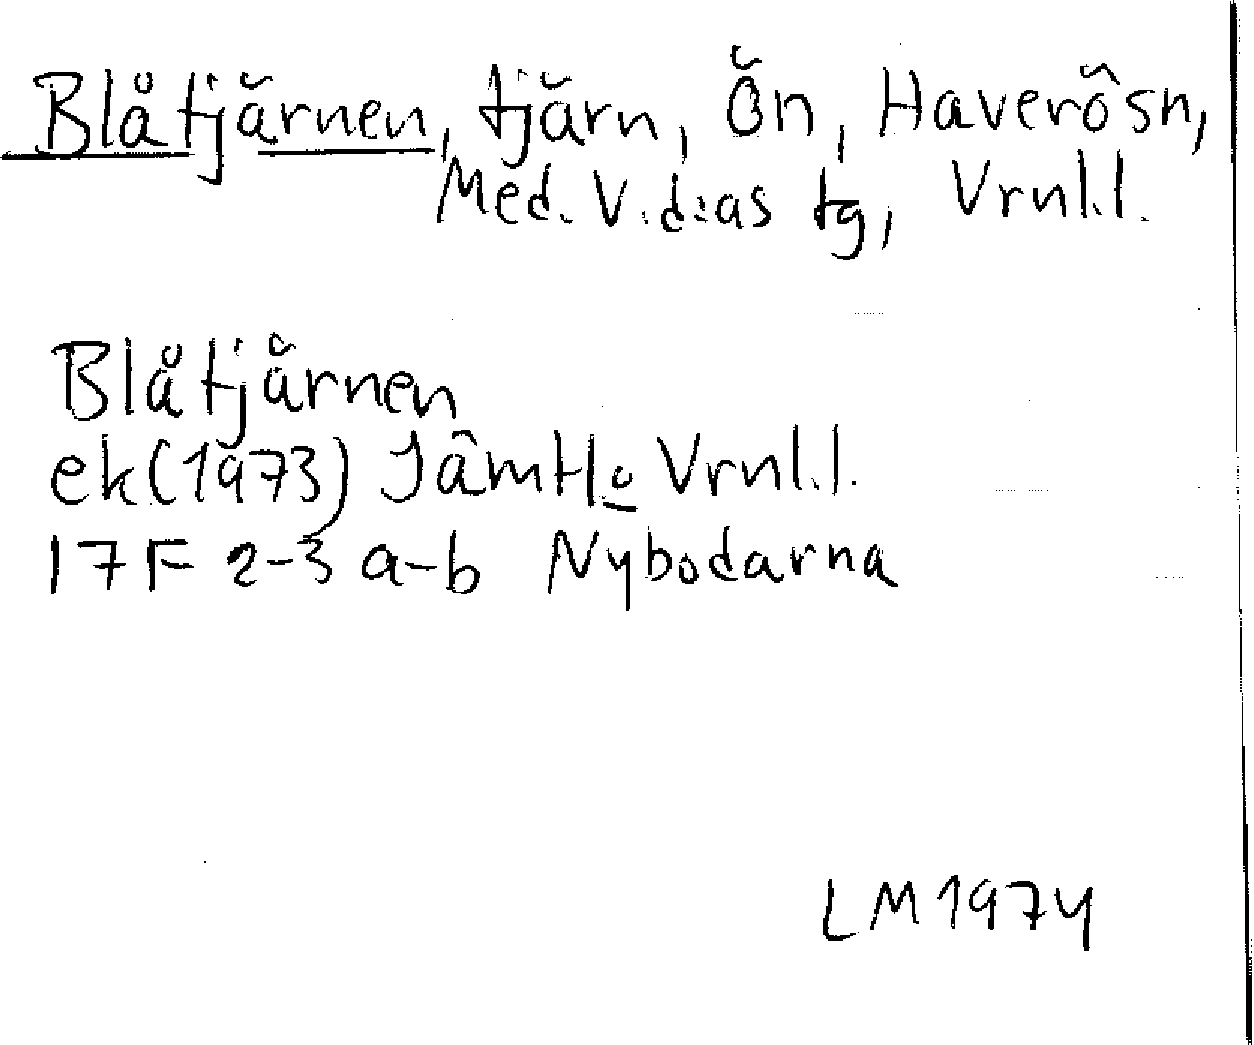 Blåtjärnen, tjärn, Ön, Haverösn,
Med. V. d:as tg, Vrnl.l.
Blåtjärnen
ek(1973) JämtLo Vrnl.l.
17F 2-3 a-b Nybodarna
LM1974